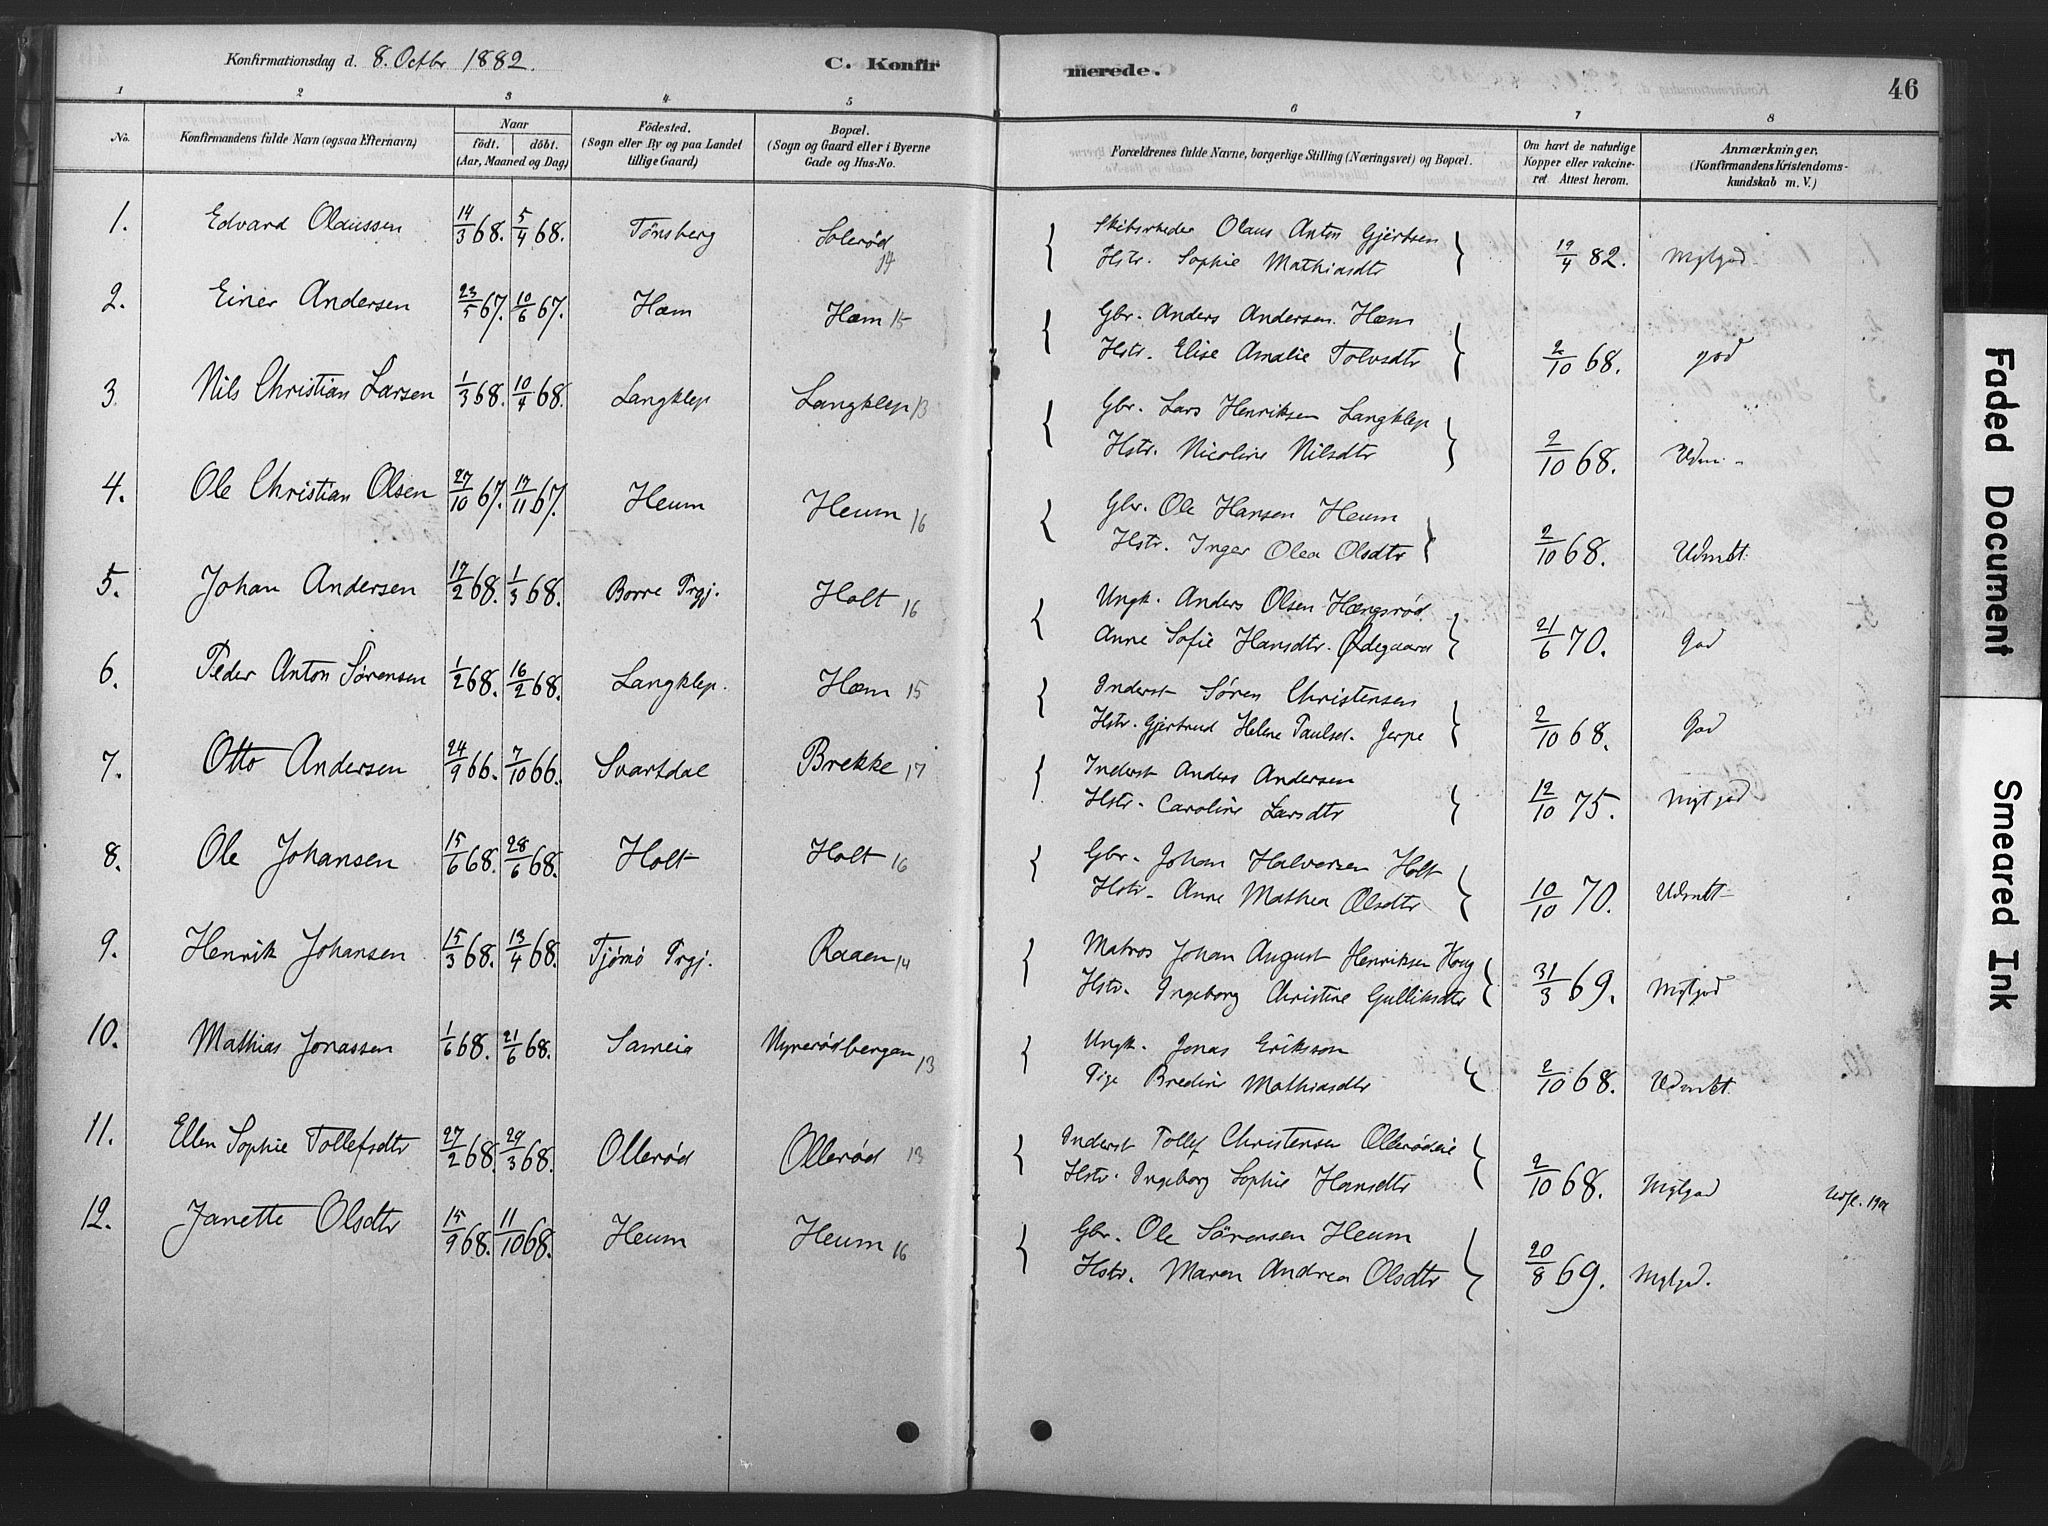 Konfirmationsdag d. 8. Octbr 1882. C. Konfirmerede. 46
1 2 3 4 5 6 7 8
No. Konfirmandens fulde Navn (ogsaa Efternavn) Naar födt. döbt. (Aar, Maaned og Dag) Födested. (Sogn eller By og paa Landet tillige Gaard) Bopæl. (Sogn og Gaard eller i Byerne Gade og Hus-No. Forældrenes fulde Navne, borgerlige Stilling (Næringsvei) og Bopæl. Om havt de naturlige Kopper eller vakcineret. Attest herom. Anmærkninger. (Konfirmandens Kristendomskundskab m. V.)
1. Edvard Olaussen 14/3 68. 5/4 68. Tönsberg Solerød 14 Skibsrheder Olaus Anton Gjertsen
Hstr. Sophie Mathiasdtr 19/4 82. Mgtgod
2. Einer Andersen 23/5 67. 10/6 67. Hæm Hæm 15 Gbr. Anders Andersen Hæm
Hstr. Elise Amalie Tolvsdtr 2/10 68. god
3 Nils Christian Larsen 1/3 68. 10/4 68. Langklep Langklep 13 Gbr. Lars Henriksen Langklep
Hstr. Nicoline Nilsdtr 2/10 68. Udm.
4. Ole Christian Olsen 27/10 67. 17/11 67. Heum Heum 16 Gbr. Ole Hansen Heum
Hstr. Inger Olea Olsdtr 2/10 68. Udmkt.
5. Johan Andersen 17/2 68. 1/3 68. Borre Prgj. Holt 16 Ungk. Anders Olsen Hængsrød
Anne Sofie Hansdtr. Ødegaard 21/6 70. God
6. Peder Anton Sørensen 1/2 68. 16/2 68. Langklep. Hæm 15 Inderst Sören Christensen
Hstr. Gjertrud Helene Paulsd. Jerpe 2/10 68. God
7. Otto Andersen 24/9 66. 7/10 66. Svartdal Brekke 17 Inderst Anders Andersen
Hstr. Caroline Larsdtr 12/10 75. Mgtgod
8. Ole Johansen 15/6 68. 28/6 68. Holt Holt 16 Gbr. Johan Halvorsen Holt
Hstr. Anne Mathea Olsdtr 10/10 70. Udmkt
9. Henrik Johansen 15/3 68. 13/4 68. Tjømö Prgj. Raaen 14 Matros Johan August Henriksen Houg
Hstr. Ingeborg Christine Gulliksdtr 31/3 69. Mgtgod
10. Mathias Jonassen 1/6 68. 21/6 68. Sameia Myrerødbergen 13 Ungk. Jonas Eriksson
Pige Bredine Mathiasdtr 2/10 68. Udmkt
11. Ellen Sophie Tollefsdtr 27/2 68. 29/3 68. Ollerød Ollerød 13 Inderst Tollef Christensen Ollerødeie
Hstr. Ingeborg Sophie Hansdtr 2/10 68. Mgtgod
12. Janette Olsdtr 15/9 68. 11/10 68. Heum Heum 16 Gbr. Ole Sörensen Heum
Hstr. Maren Andrea Olsdtr 20/8 69. Mgtgod.
Faded Document
Smeared Ink